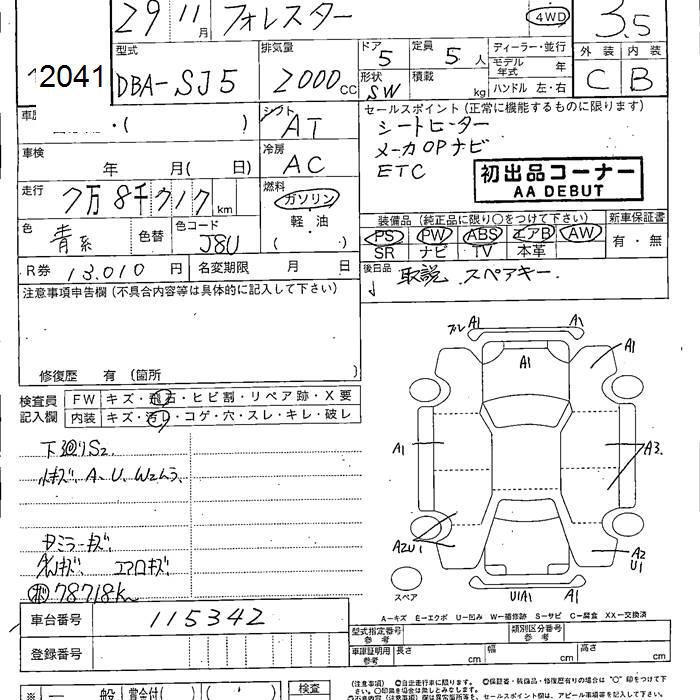 29 11月 フォレスター 4WD 3.5
2041
型式 DBA-SJ5
排気量 2000cc
ドア 5 定員 5人
形状 SW 積載 kg
ディーラー・並行
モデル年式 年
ハンドル 左・右
外装 内装
C B
車歴 ・( )
シフト AT
セールスポイント(正常に機能するものに限ります)
シートヒーター
メーカOPナビ
ETC
初出品コーナー
AA DEBUT
車検 年 月( 日)
冷房 AC
走行 7万8千717km
燃料 ガソリン
軽・油
( )
色 青系 色替 色コード J8U
装備品(純正品に限り○をつけて下さい) 新車保証書
PS PW ABS エアB AW 有・無
SR ナビ TV 本革
R券 13.010円 名変期限 月 日
後日品 取説 スペアキー
注意事項申告欄(不具合内容等は具体的に記入して下さい)
修復歴 有(箇所 )
検査員記入欄
FW キズ・飛石・ヒビ割・リペア跡・X要
内装 キズ・汚レ・コゲ・穴・スレ・キレ・破レ
下廻りS2
小キズ、A、U、W2ムラ、
ドミラーキズ、
AWキズ、エアロキズ
78718km
A1 A1
A1
A1
A1
A3
A2U1
A2
U1
スペア U1A1 A1
A-キズ E-エクボ U-凹み W-補修跡 S-サビ C-腐食 XX-交換済
車台番号 115342
登録番号
型式指定番号 参考
類別区分番号 参考
車庫証明用 参考 長さ cm 幅 cm 高さ cm
※ 一 般 賞金付( ) ( ・ ) 検査
(注意) ○自走走行車に限ります。 ○保証書・装備品・修復歴有りの場合は"○"印をつけて下
さい。○印無き場合は無しとみなします。